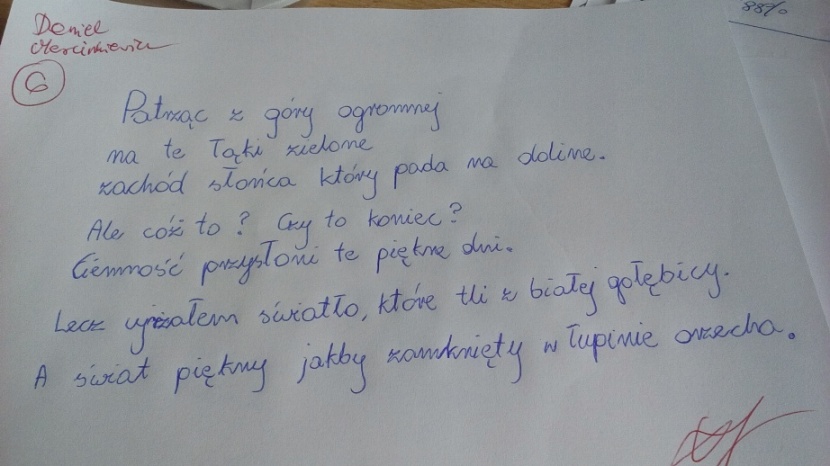 88%
Daniel
Marcinkiewicz
6
Patrząc z góry ogromnej
na te łąki zielone
zachód słońca który pada na doline.
Ale cóż to? Czy to koniec?
Ciemność przysłoni te piękne dni.
Lecz ujrzałem światło, które tli z białej gołębicy.
A świat piękny jakby zamknięty w łupinie orzecha.